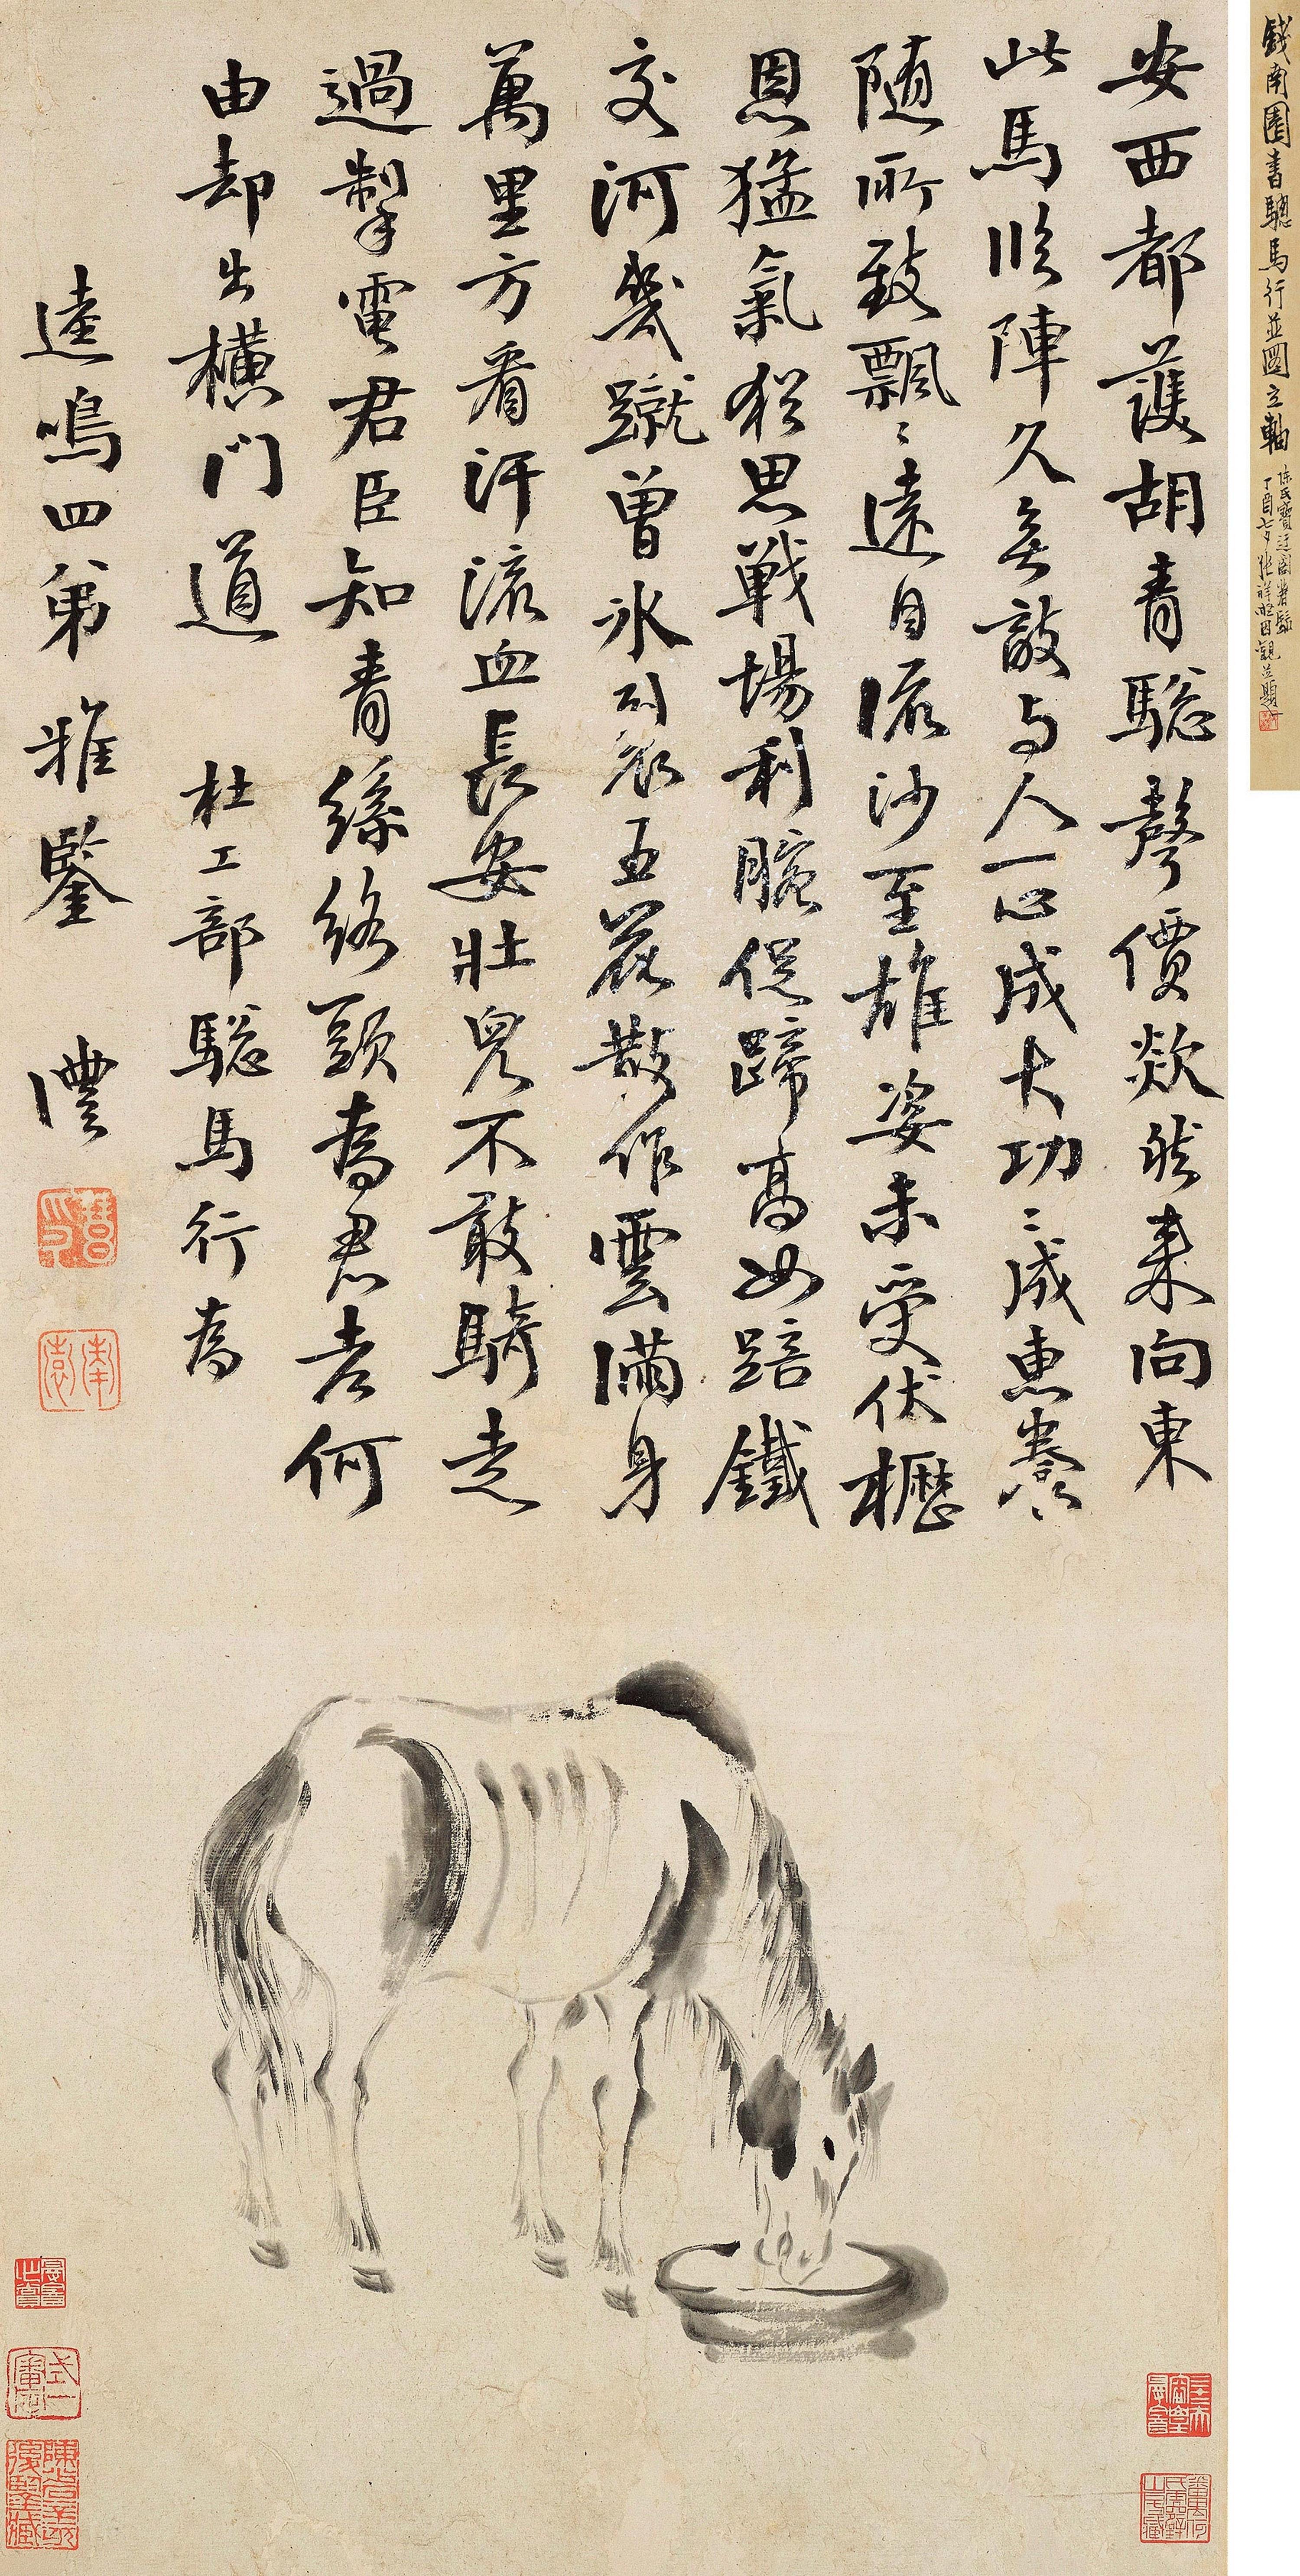 錢南園書驄馬行並圖立軸
陳氏寶迂閣舊藏
丁酉七夕張祥凝因觀並題
安西都護胡青騘聲價欻然来向東
此馬臨陣久無敵与人一心成大功〻成惠養
随所致飄〻遠自流沙至雄姿未受伏櫪
恩猛氣猶思戰場利腕促蹄高如踣鐵
交河幾蹴曾冰裂五花散作雲滿身
萬里方看汗流血長安壯兒不敢騎走
過掣電君臣知青絲絡頭為君老何
由却出橫門道 杜工部騘馬行為
逵鳴四弟 雅鑒 澧
南園